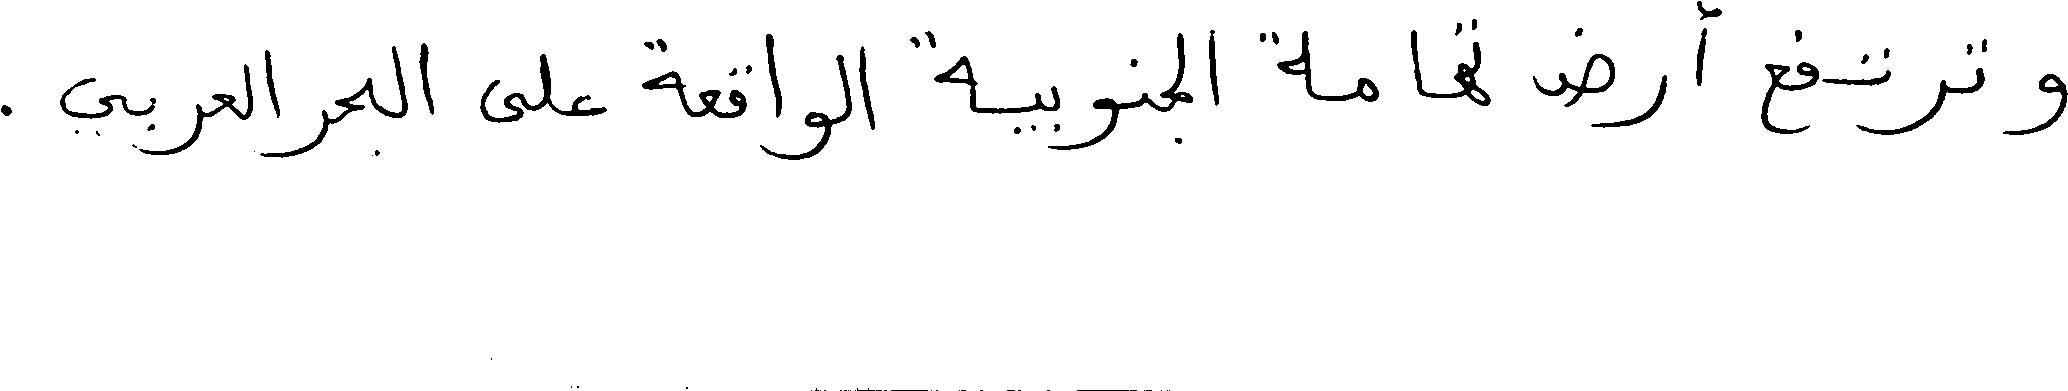 وترتفع أرض تهامة الجنوبية الواقعة على البحر العربي .